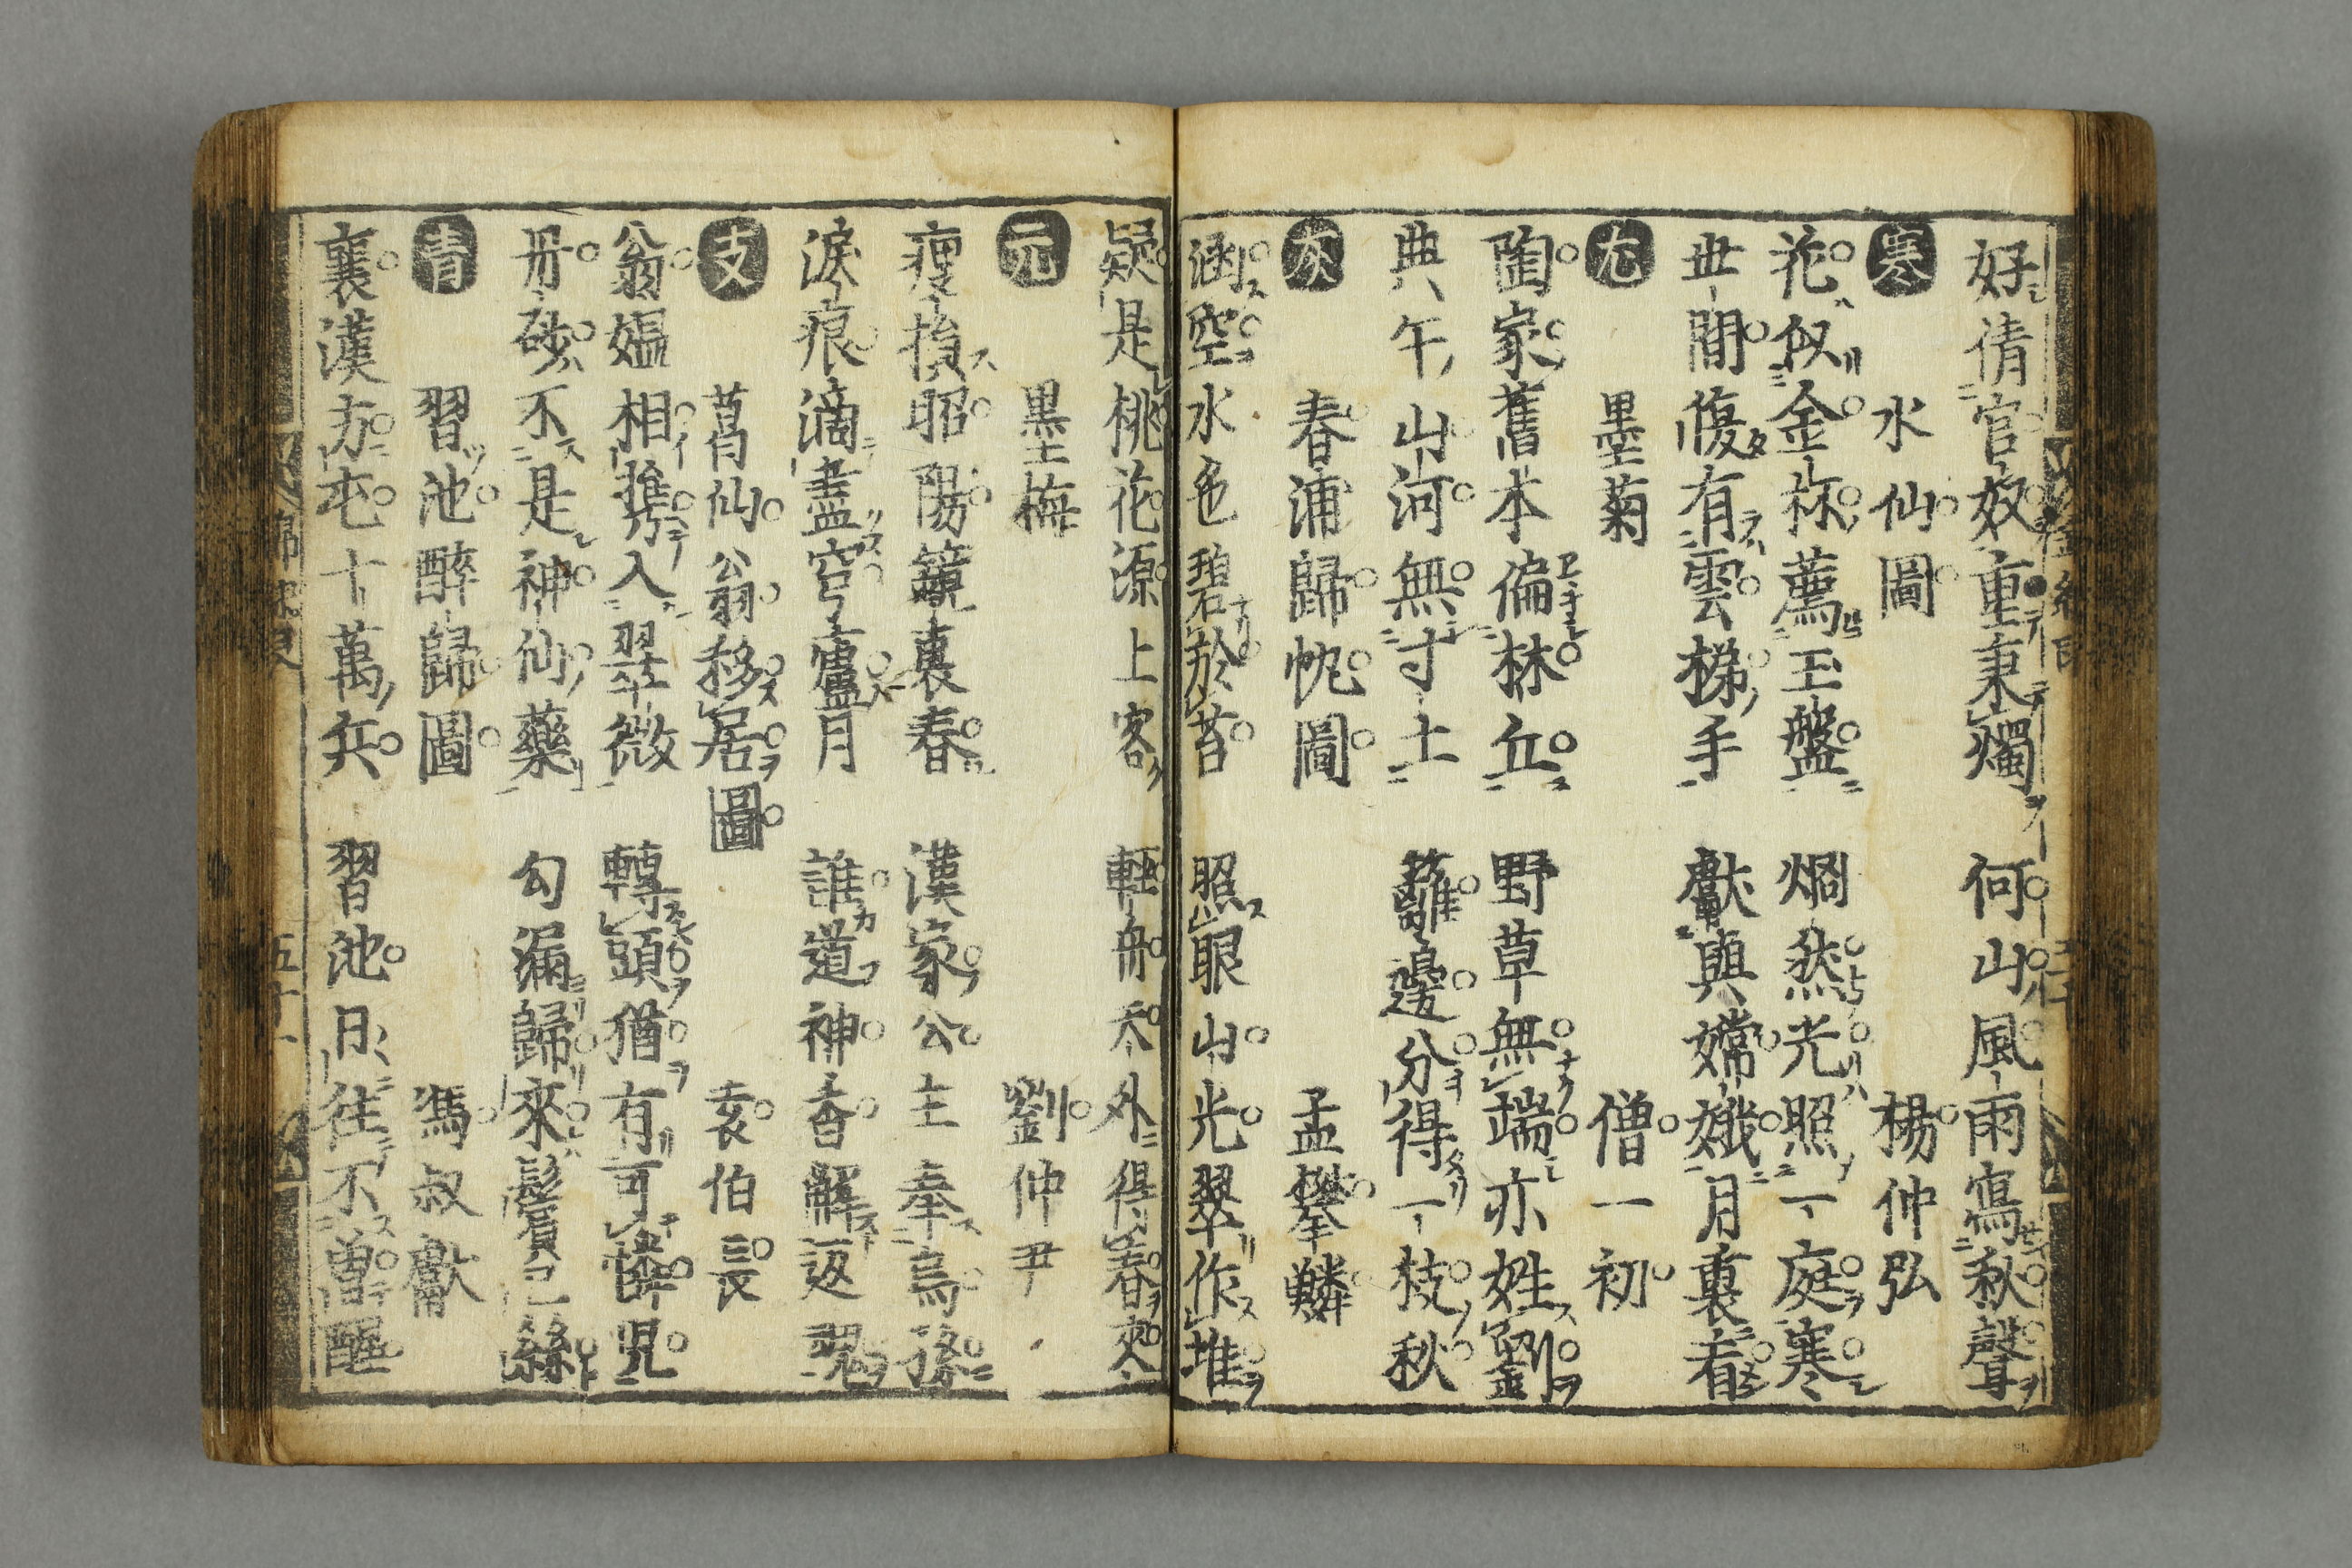 好倩官奴重秉燭　何山風雨寫秋聲
寒　水仙圖　楊仲弘
花似金　薦玉盤　炯然光照一庭寒
世間復有雲梯手　獻與嫦娥月裏看
尤　墨菊　僧一初
陶家舊本偏林丘　野草無端亦姓劉
典午山河無寸土　籬邊分得一枝秋
灰　春浦歸帆圖　孟攀鱗
涵空水色碧於苔　照眼山光翠作堆
疑是桃花源上客　輕舟天外得春來
元　墨梅　劉仲尹
瘦損昭陽鏡裏春　漢家公主奉烏孫
淚痕滴盡穹廬月　誰道神香解返魂
支　葛仙翁移居圖　袁伯長
翁媼相携入翠微　轉頭猶有可憐児
丹砂不是神仙藥　勾漏歸來鬢已絲
青　習池醉歸圖　馮叔獻
襄漢方屯十萬兵　習池日日往不曽醒
五十八